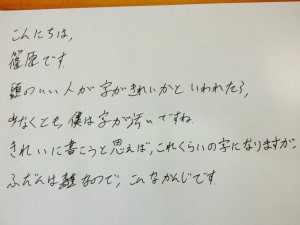 こんにちは,
篠原です.
頭のいい人が字がきれいかといわれたら,
少なくとも,僕は字が汚いですね.
きれいに書こうと思えば,これくらいの字になりますが,
ふだんは雑なので,こんなかんじです.